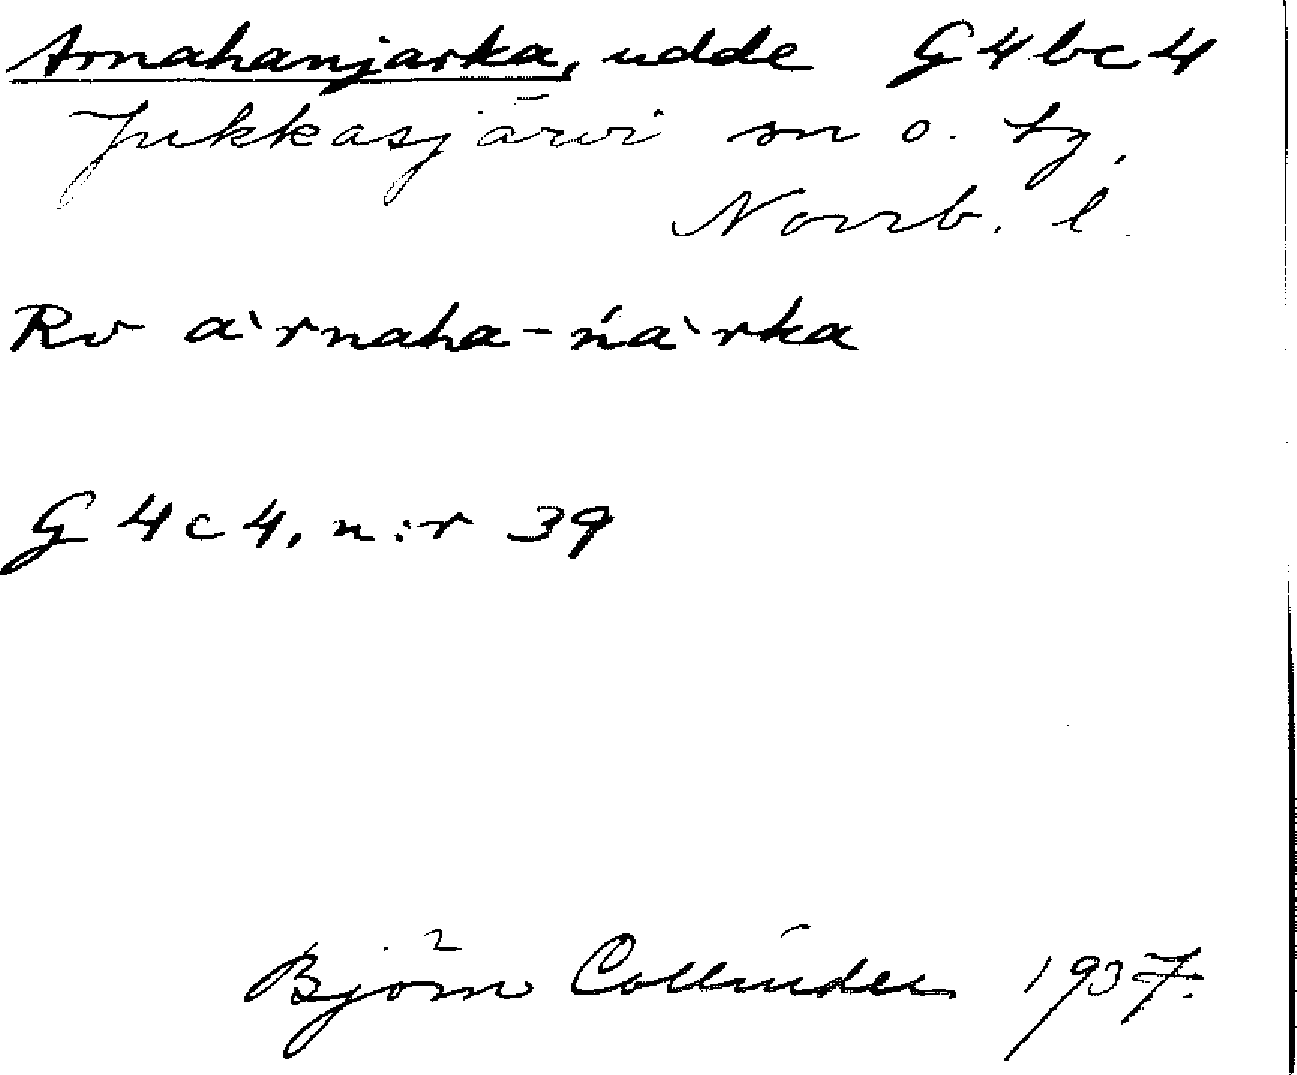 Arnahanjarka, udde G4bc4
Jukkasjärvi sn o. tg,
Norrb. l.
Rv a`rnaha-ńa`rka
G 4c4, n:r 39
Björn Collinder 1937.